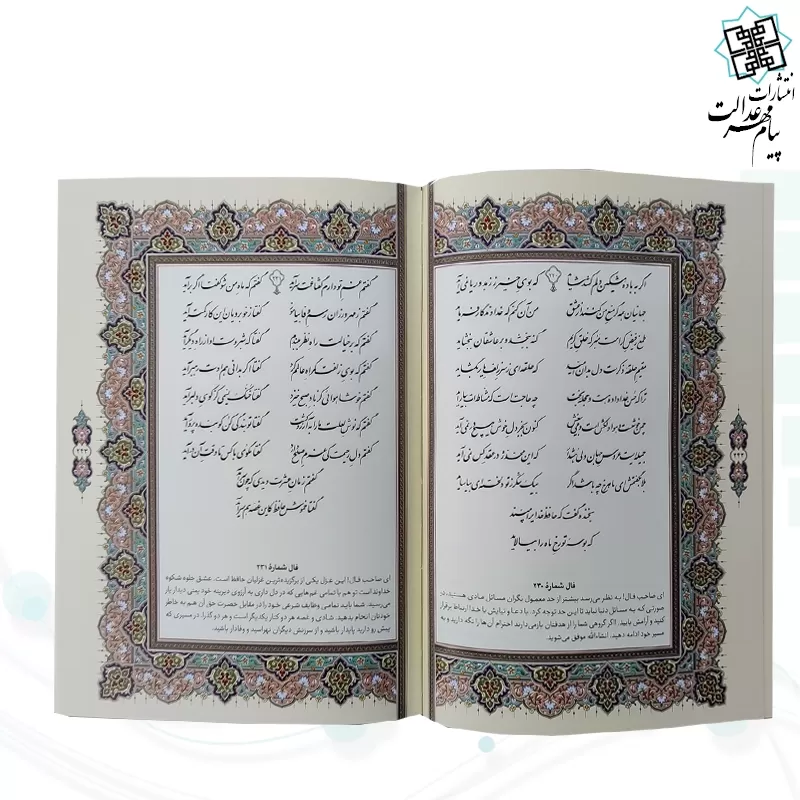 انتشارات
پیام مهر عدالت
۲۳۰
اگر به باده مشکین دلم کشد شاید که بوی خیر ز زهد و ریا نمی آید
جهانیان همه گر منع من کنند از عشق من آن کنم که خداوندگار فرماید
طمع ز فیض کرامت مبر که خلق کریم گنه ببخشد و بر عاشقان ببخشاید
مقیم حلقه ذکرست دل بدان امید که حلقه ای ز سر زلف یار بگشاید
ترا که حسن خداداده هست و حجله بخت چه حاجت است که مشاطه ات بیاراید
چمن خوشست و هوا دلکش است و می بی غش کنون بجز دل خوش هیچ در نمی باید
جمیله ایست عروس جهان ولی هش دار که این مخدره در عقد کس نمی آید
بلابه گفتمش ای ماهرخ چه باشد اگر بیک شکر ز تو دلخسته ای بیاساید
بخنده گفت که حافظ خدای را مپسند
که بوسه تو رخ ماه را بیالاید
فال شمارهٔ ۲۳۰
ای صاحب فال! به نظر می‌رسد بیشتر از حد معمول نگران مسائل مادی هستید، در
صورتی که به مسائل دنیا نباید تا این حد توجه کرد. با دعا و نیایش با خدا ارتباط برقرار
کنید و آرامش یابید. اگر گروهی شما را از هدفتان بازمی‌دارند احترام آن‌ها را نگه دارید و به
مسیر خود ادامه دهید. انشاءالله موفق می‌شوید.
۲۳۱
گفتم غم تو دارم گفتا غمت سر آید گفتم که ماه من شو گفتا اگر برآید
گفتم ز مهرورزان رسم وفا بیاموز گفتا ز خوبرویان این کار کمتر آید
گفتم که بر خیالت راه نظر ببندم گفتا که شبروست او از راه دیگر آید
گفتم که بوی زلفت گمراه عالمم کرد گفتا اگر بدانی هم اوت رهبر آید
گفتم خوشا هوایی کز باد صبح خیزد گفتا خنک نسیمی کز کوی دلبر آید
گفتم که نوش لعلت ما را به آرزو کشت گفتا تو بندگی کن کو بنده پرور آید
گفتم دل رحیمت کی عزم صلح دارد گفتا مگوی با کس تا وقت آن درآید
گفتم زمان عشرت دیدی که چون سر آمد
گفتا خموش حافظ کاین غصه هم سر آید
فال شمارهٔ ۲۳۱
ای صاحب فال! این غزل یکی از برگزیده‌ترین غزلیان حافظ است. عشق جلوه شکوه
خداوند است و هم با تمامی غم‌هایی که در دل داری به آرزوی دیرینه خود یعنی دیدار یار
می‌رسید. شما باید تمامی وظایف شرعی خود را در مقابل حضرت حق آن هم به خاطر
خودتان انجام بدهید. شادی و غصه هر دو کنار یکدیگر است و هر دو گذرا، در مسیری که
پیش رو دارید پایدار باشید و از سرزنش دیگران نهراسید و وفادار باشید.